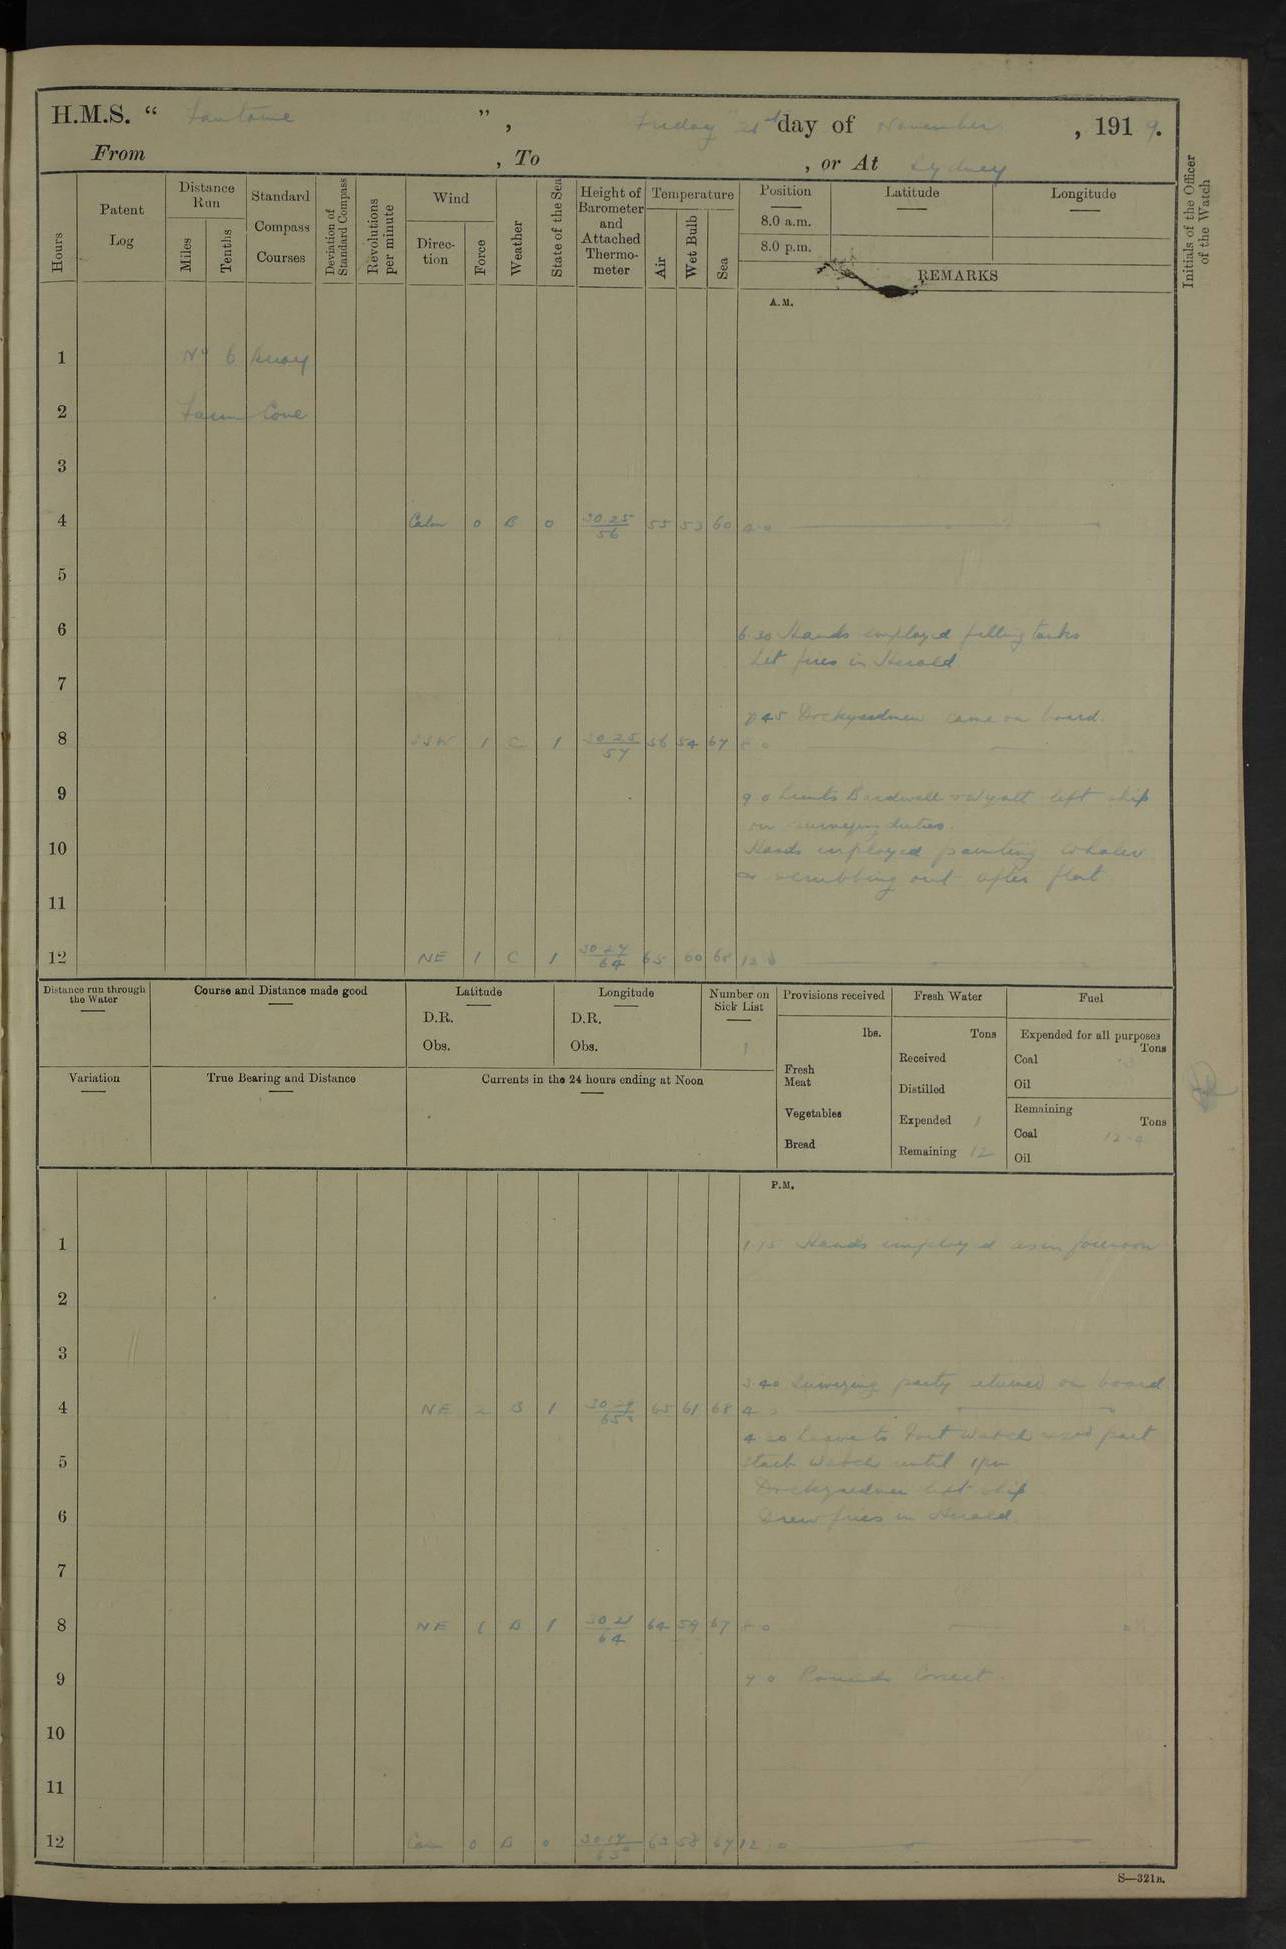 H.M.S. “ Fantome ” , Friday 21st day of November , 1919.
From , To , or At Sydney
Hours
Patent Log
Distance Run
Miles
Tenths
Standard Compass Courses
Deviation of Standard Compass
Revolutions per minute
Wind
Direc-tion
Force
Weather
State of the Sea
Height of Barometer and Attached Thermo-meter
Temperature
Air
Wet Bulb
Sea
Position Latitude Longitude
8.0 a.m.
8.0 p.m.
REMARKS
Initials of the Officer of the Watch
A.M.
1 No 6 Buoy
2 Farm Cove
3
4 Calm 0 B 0 30.25/56 55 53 60 4.0
5
6 6.30 Hands employed filling tanks
Lit fires in Herald
7
7.45 Dockyardmen came on board.
8 SSW 1 C 1 30.25/57 56 54 67 8.0
9 9.0 Lieuts Bardwell & Wyatt left ship
on surveying duties.
10 Hands employed painting whaler
& scrubbing out after flat
11
12 NE 1 C 1 30.27/64 65 60 68 12.0
Distance run through the Water
Course and Distance made good
Latitude
D.R.
Obs.
Longitude
D.R.
Obs.
Number on Sick List
1
Provisions received
lbs.
Fresh Meat
Vegetables
Bread
Fresh Water
Tons
Received
Distilled
Expended 1
Remaining 12
Fuel
Expended for all purposes
Tons
Coal .3
Oil
Remaining
Tons
Coal 12.4
Oil
Variation
True Bearing and Distance
Currents in the 24 hours ending at Noon
P.M.
1 1.15 Hands employed as in forenoon
2
3
3.40 Surveying party returned on board
4 NE 2 B 1 65 61 68 4.0
4.20 Leave to Port Watch and part
5 Starb Watch until
Dockyardmen left ship
6 Drew fires in Herald
7
8 NE 1 B 1 30.21/64 64 59 67 8.0
9 9.0 Rounds Correct
10
11
12 Calm 0 B 0 30.17/63 63 58 67 12.0
S—321B.